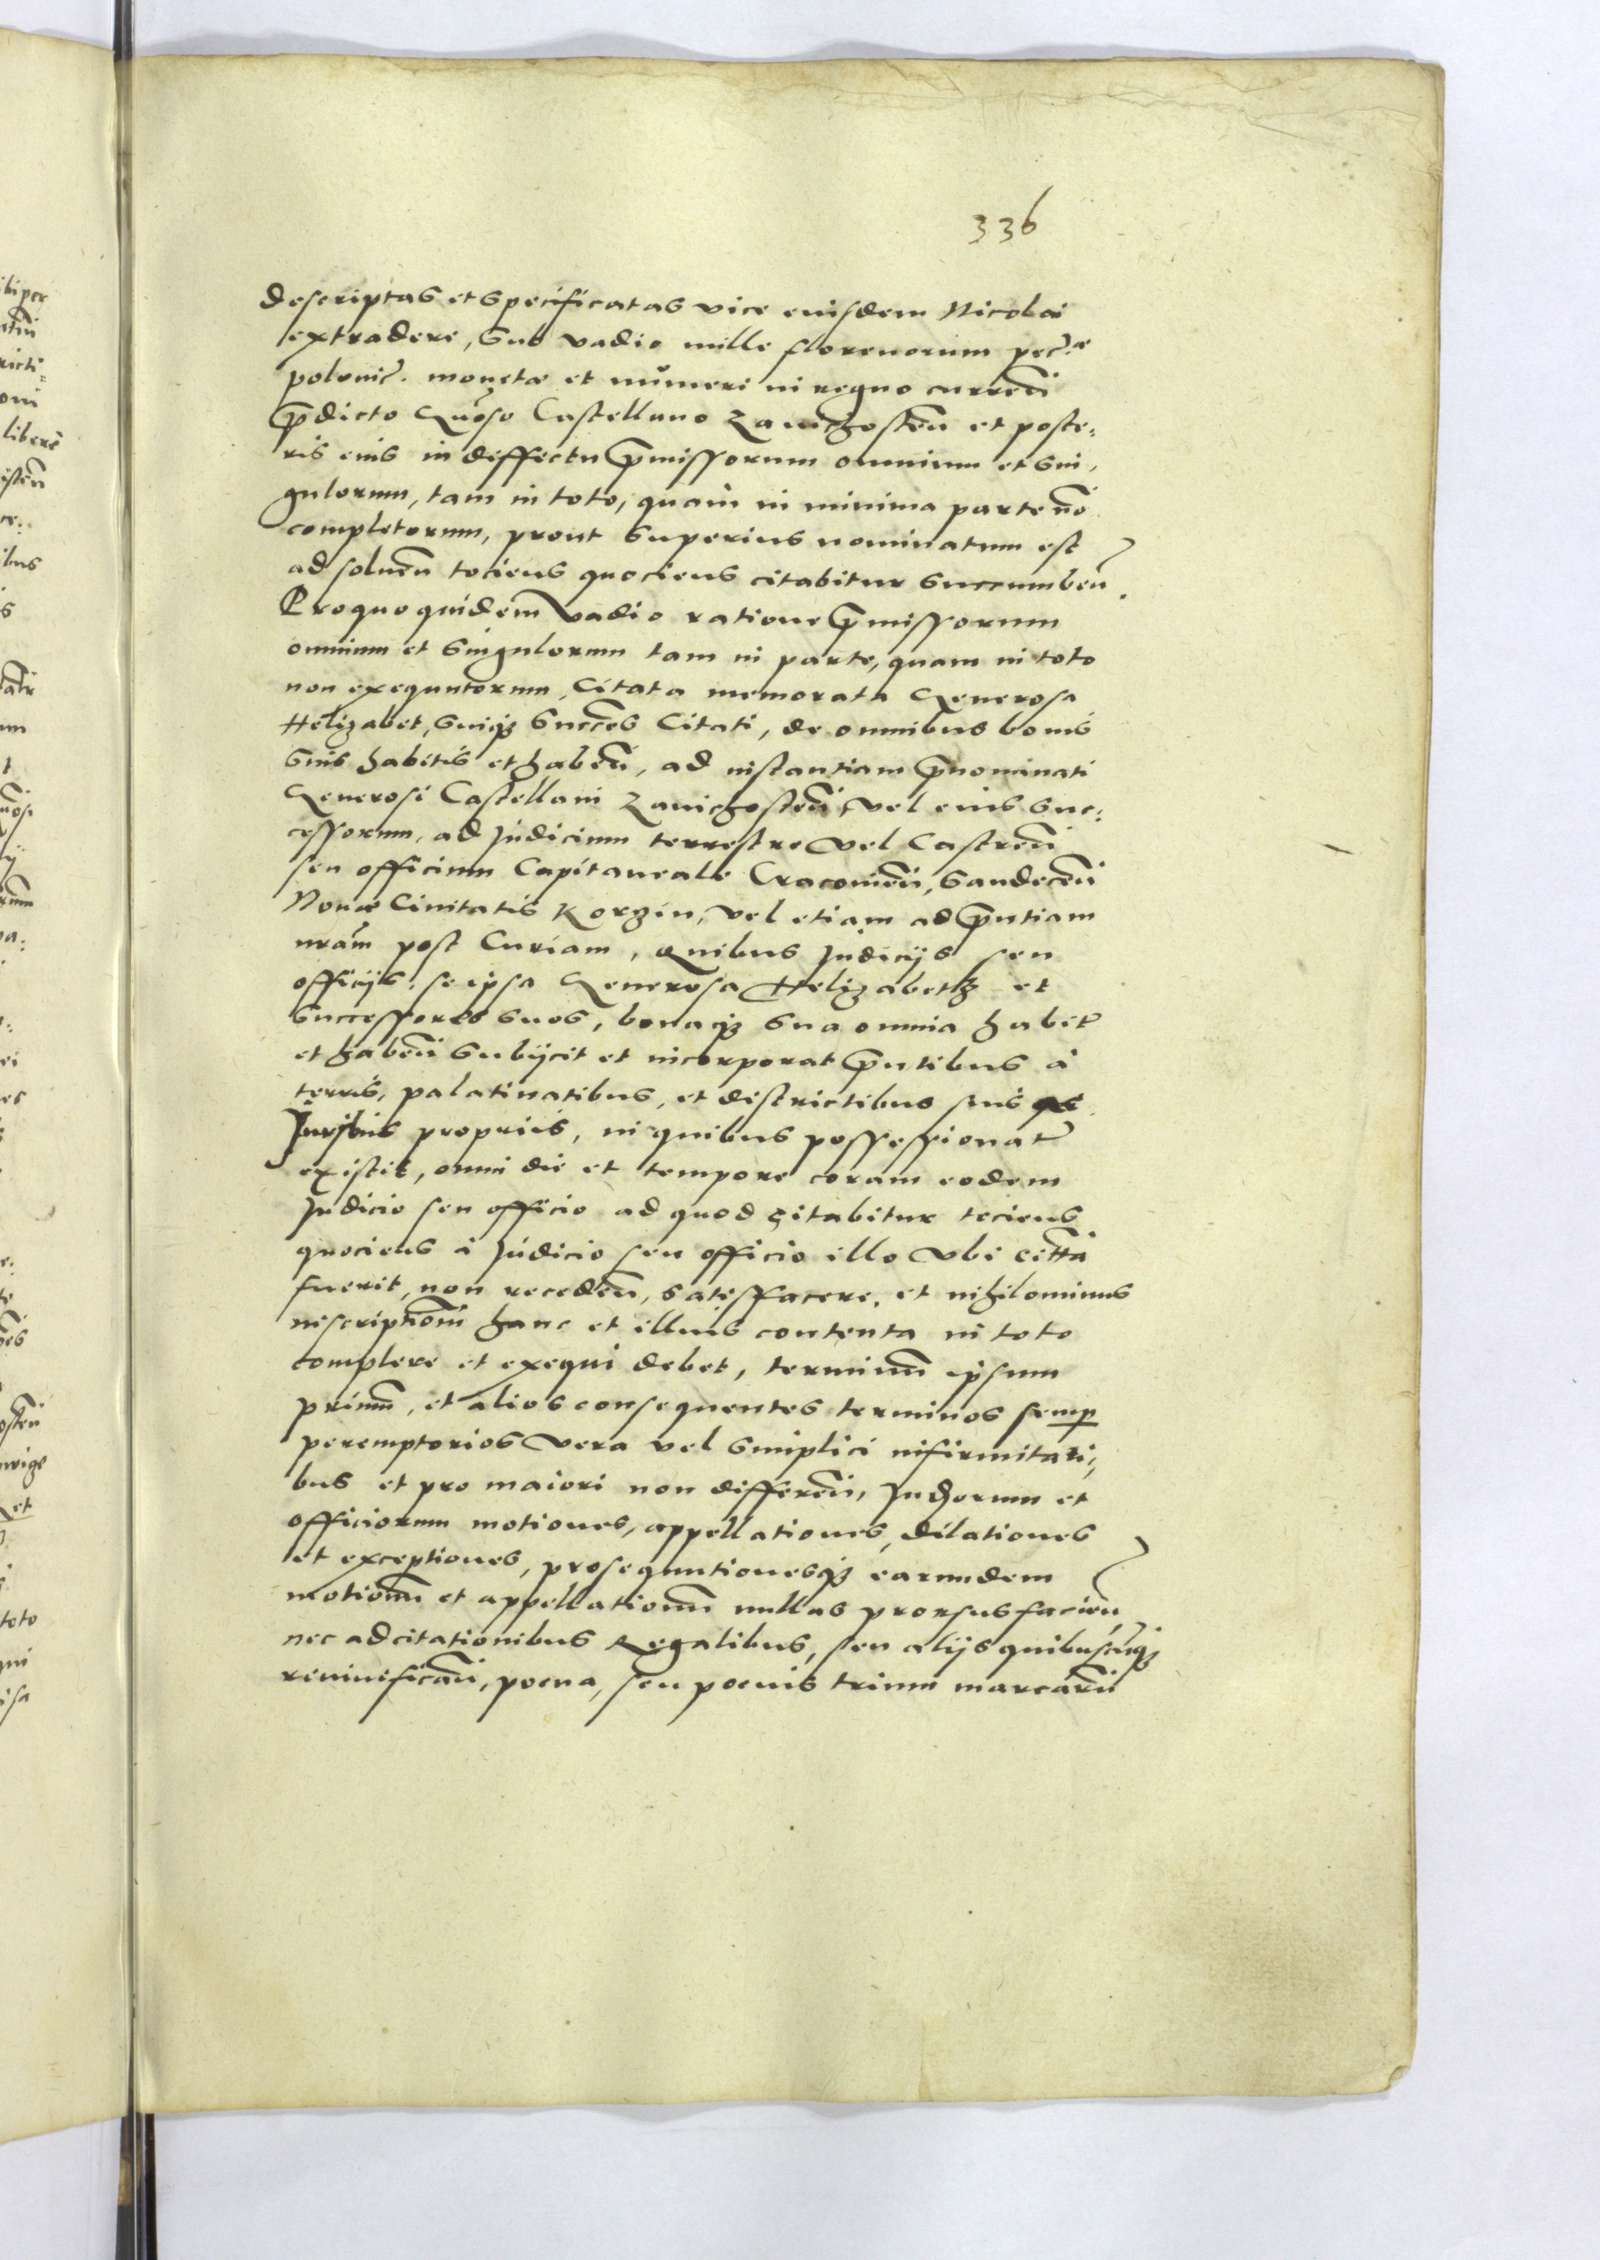 336
descriptas et specificatas vice eiusdem Nicolai
extradere, sub vadio mille florenorum pecͻ
polonicͻ. monetæ et numeri in regno curren̄
p̄dicto Gn̄oso Castellano Zawichosten̄ et poste:
ris eius in deffectu p̄missorum omnium et sin,
gulorum, tam in toto, quam in minima parte nō
completorum, prout superius nominatum est
ad soluen̄ tociens quociens citabitur succumben̄.
Pro quo quidem vadio ratione p̄missorum
omnium et singulorum tam in parte, quam in toto
non exequutorum, Citata memorata Generosa
Helizabet, suiqȝ succ̄es Citati, de omnibus bonis
suis habitis et haben̄, ad instantiam p̄nominati
Generosi Castellani Zawichosten̄ vel eius suc:
cessorum, ad Judicium terrestre vel Castren̄
seu officium Capitaneale Cracouien̄, Sandecen̄
Nouæ Ciuitatis Korzin, vel etiam ad p̄ntiam
nrām post Curiam, quibus Judicijs seu
officijs, se ipsa Generosa Helizabeth et
successores suos, bonaqȝ sua omnia habit̄
et haben̄ subijcit et incorporat p̄ntibus à
terris, palatinatibus, et districtibus suis
Juribus proprijs, in quibus possessionat̄
existit, omni die et tempore coram eodem
Judicio seu officio ad quod citabitur tociens
quociens à Judicio seu officio illo vbi citt̄a
fuerit, non receden̄, satisffacere, et nihilominus
inscriptionē hanc et illius contenta in toto
complere et exequi debet, terminū ipsum
primū, et alios consequentes terminos semp̱
peremptorios vera vel simplici infirmitati,
bus et pro maiori non differen̄, Judiorum et
officiorum motiones, appellationes, dilationes
et exceptiones, prosequutionesqȝ earundem
motionū et appellationū nullas prorsus facien̄,
nec ad citationibus Regalibus, seu alijs quibuscūqȝ
reuiuifican̄, poena, seu poenis trium marcarū